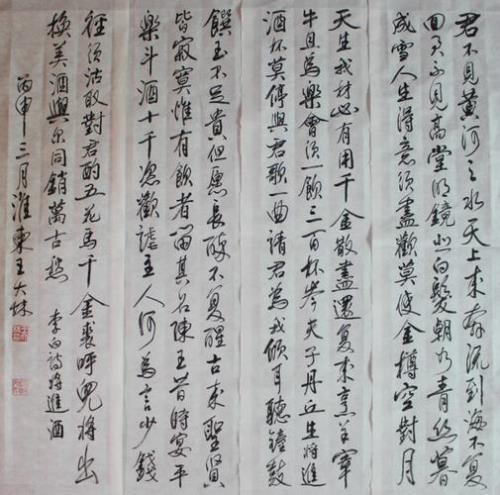 君不見黃河之水天上來奔流到海不復
回君不見高堂明鏡悲白髮朝如青絲暮
成雪人生得意須盡歡莫使金樽空對月
天生我材必有用千金散盡還復來烹羊宰
牛且為樂會須一飲三百杯岑夫子丹丘生將進
酒杯莫停與君歌一曲請君為我傾耳聽鐘鼓
饌玉不足貴但愿長醉不復醒古來聖賢
皆寂寞惟有飲者留其名陳王昔時宴平
樂斗酒十千恣歡謔主人何為言少錢
徑須沽取對君酌五花馬千金裘呼兒將出
換美酒與尔同銷萬古愁 李白詩將進酒
丙申三月淮東王大林